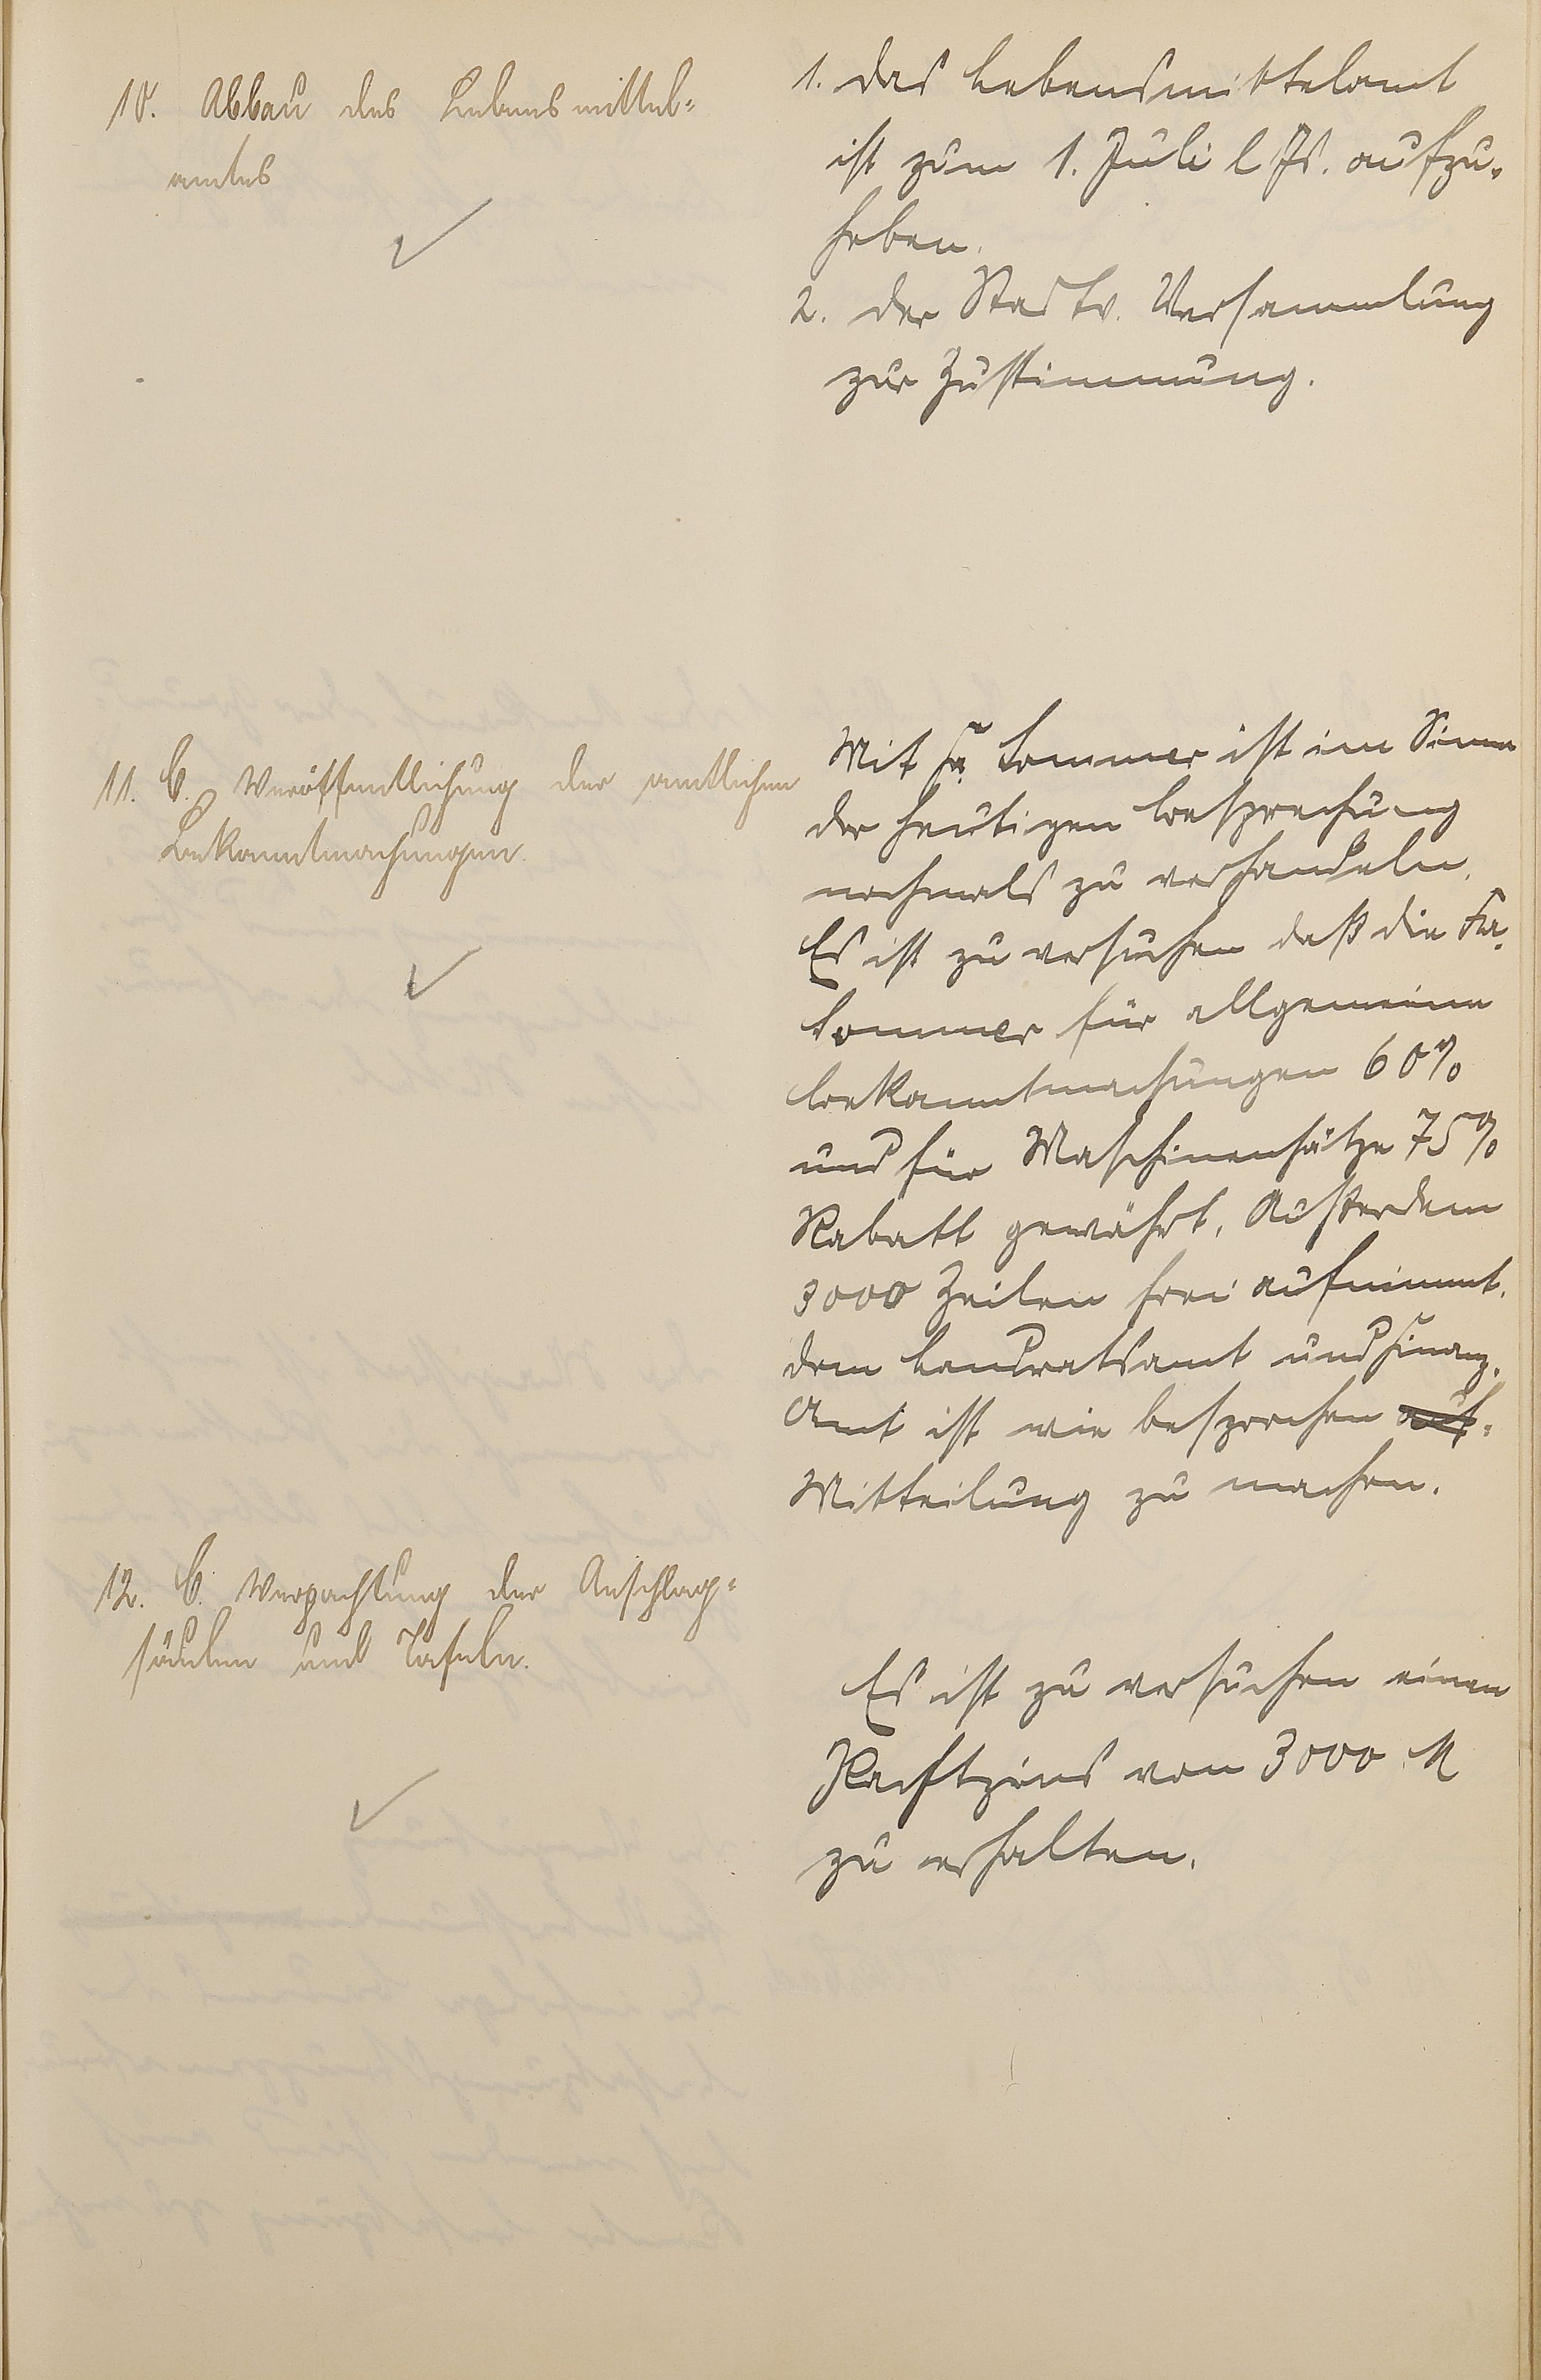 10. Abbau des Lebensmittel=
amtes
1. Das Lebensmittelamt
ist zum 1. Juli l Js. aufzu-
heben.
2. Der Stadtv. Versammlung
zur Zustimmung.
11. b. Veröffentlichung der amtlichen
Bekanntmachungen.
Mit Fa. Sommer ist im Sinne
der heutigen Besprechung
nochmals zu verhandeln.
Es ist zu versuchen daß die Fa.
Sommer für allgemeine
Bekanntmachungen 60%
und für Maschinensätze 75%
Rabatt gewährt, Außerdem
3000 Zeilen frei aufnimmt.
Dem Landratsamt und Finanz-
Amt ist wie besprochen
Mitteilung zu machen.
12. b. Verpachtung der Anschlag=
säulen und Tafeln.
Es ist zu versuchen einen
Pachtzins von 3000 M
zu erhalten.